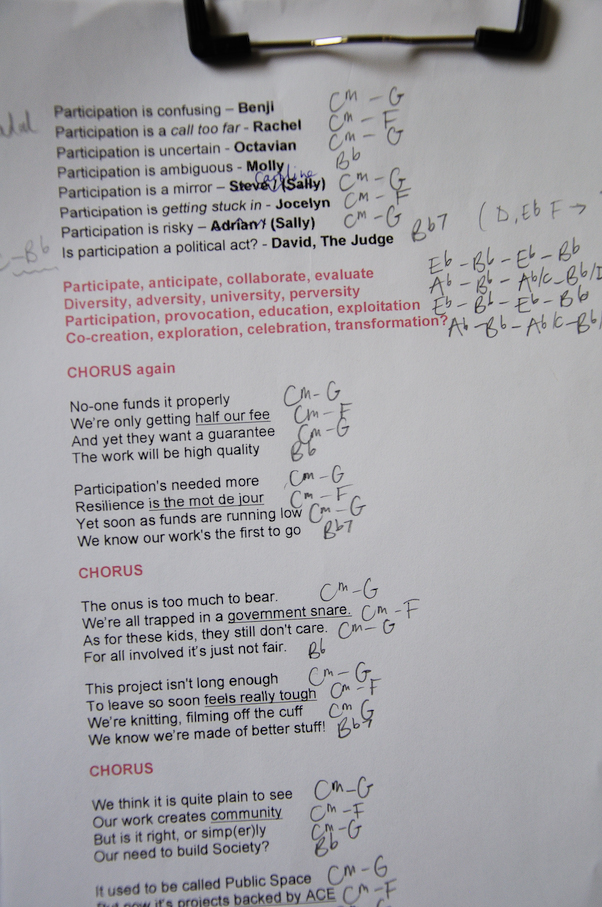 Participation is confusing – Benji Cm – G
Participation is a call too far - Rachel Cm – F
Participation is uncertain - Octavian Cm – G
Participation is ambiguous - Molly Bb
Caroline
Participation is a mirror – Steve / (Sally) Cm – G
Participation is getting stuck in - Jocelyn Cm – F
Participation is risky – Adrian / (Sally) Cm – G
C–Bb Is participation a political act? - David, The Judge Bb7 ( D, Eb F →
Participate, anticipate, collaborate, evaluate Eb – Bb – Eb – Bb
Diversity, adversity, university, perversity Ab – Bb – Ab/C – Bb/D
Participation, provocation, education, exploitation Eb – Bb – Eb – Bb
Co-creation, exploration, celebration, transformation? Ab – Bb – Ab/C – Bb/
CHORUS again
No-one funds it properly Cm – G
We're only getting half our fee Cm – F
And yet they want a guarantee Cm – G
The work will be high quality Bb
Participation's needed more Cm – G
Resilience is the mot de jour Cm – F
Yet soon as funds are running low Cm – G
We know our work's the first to go Bb7
CHORUS
The onus is too much to bear. Cm – G
We're all trapped in a government snare. Cm – F
As for these kids, they still don't care. Cm – G
For all involved it's just not fair. Bb
This project isn't long enough Cm – G
To leave so soon feels really tough Cm – F
We're knitting, filming off the cuff Cm G
We know we're made of better stuff! Bb7
CHORUS
We think it is quite plain to see Cm – G
Our work creates community Cm – F
But is it right, or simp(er)ly Cm – G
Our need to build Society? Bb
It used to be called Public Space Cm – G
But now it's projects backed by ACE Cm – F